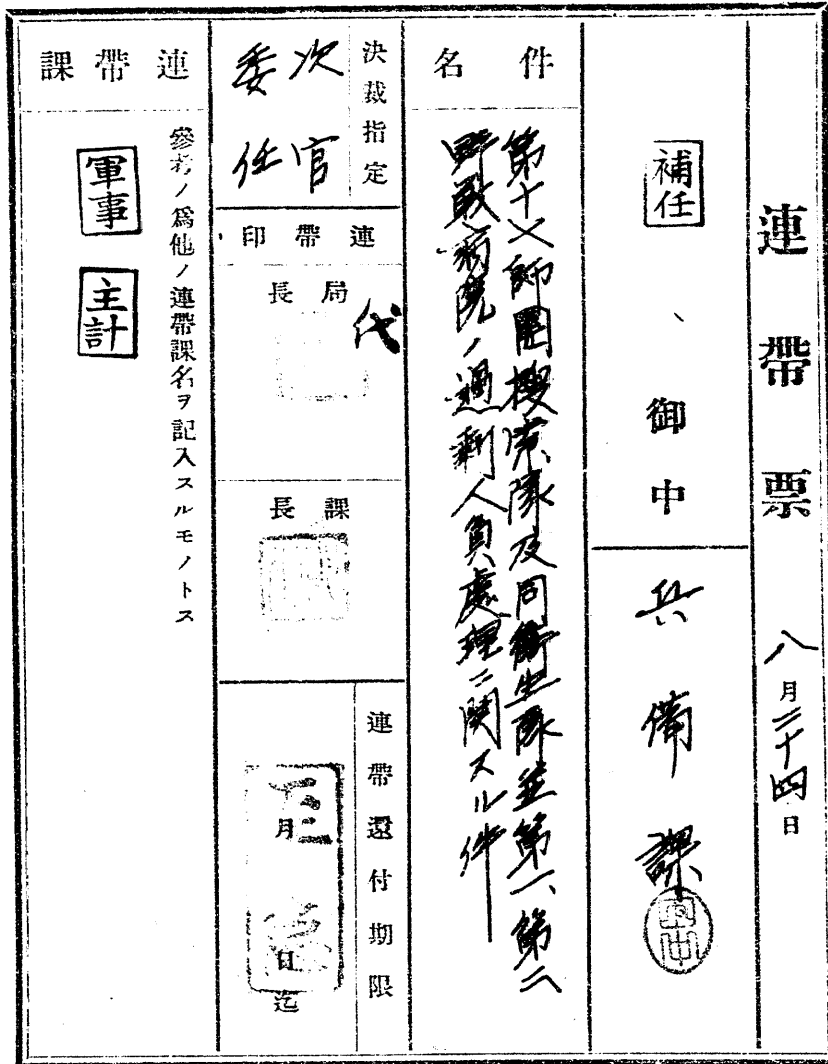 連帶票
八月二十四日
補任
御中
兵備課
件名
第十七師團搜索隊及同衞生隊並第一、第二
野戰病院ノ過剩人員處理ニ關スル件
決裁指定
次官
委任
連帶印
局長
代
課長
連帶還付期限
至急
月
日迄
連帶課
參考ノ爲他ノ連帶課名ヲ記入スルモノトス
軍事
主計